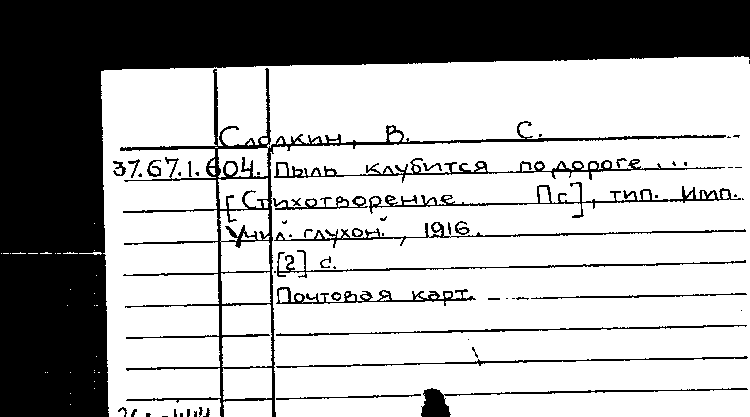 Сладкин, В. С.
37.67.1.604. Пыль клубится по дороге...
[Стихотворение. Пг.], тип. Имп.
Учил. глухон., 1916.
[2] с.
Почтовая карт.